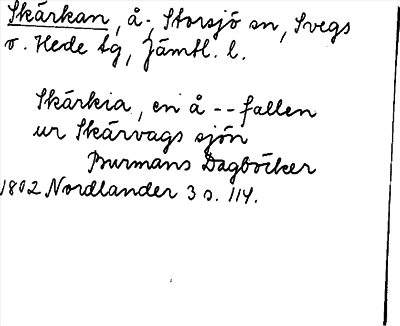 Skärkan, å; Storsjö sn, Svegs
o. Hede tg, Jämtl. l.
Skärkia, en å -- fallen
ur Skärvags sjön
Burmans Dagböcker
1802 Nordlander 3 s. 114.